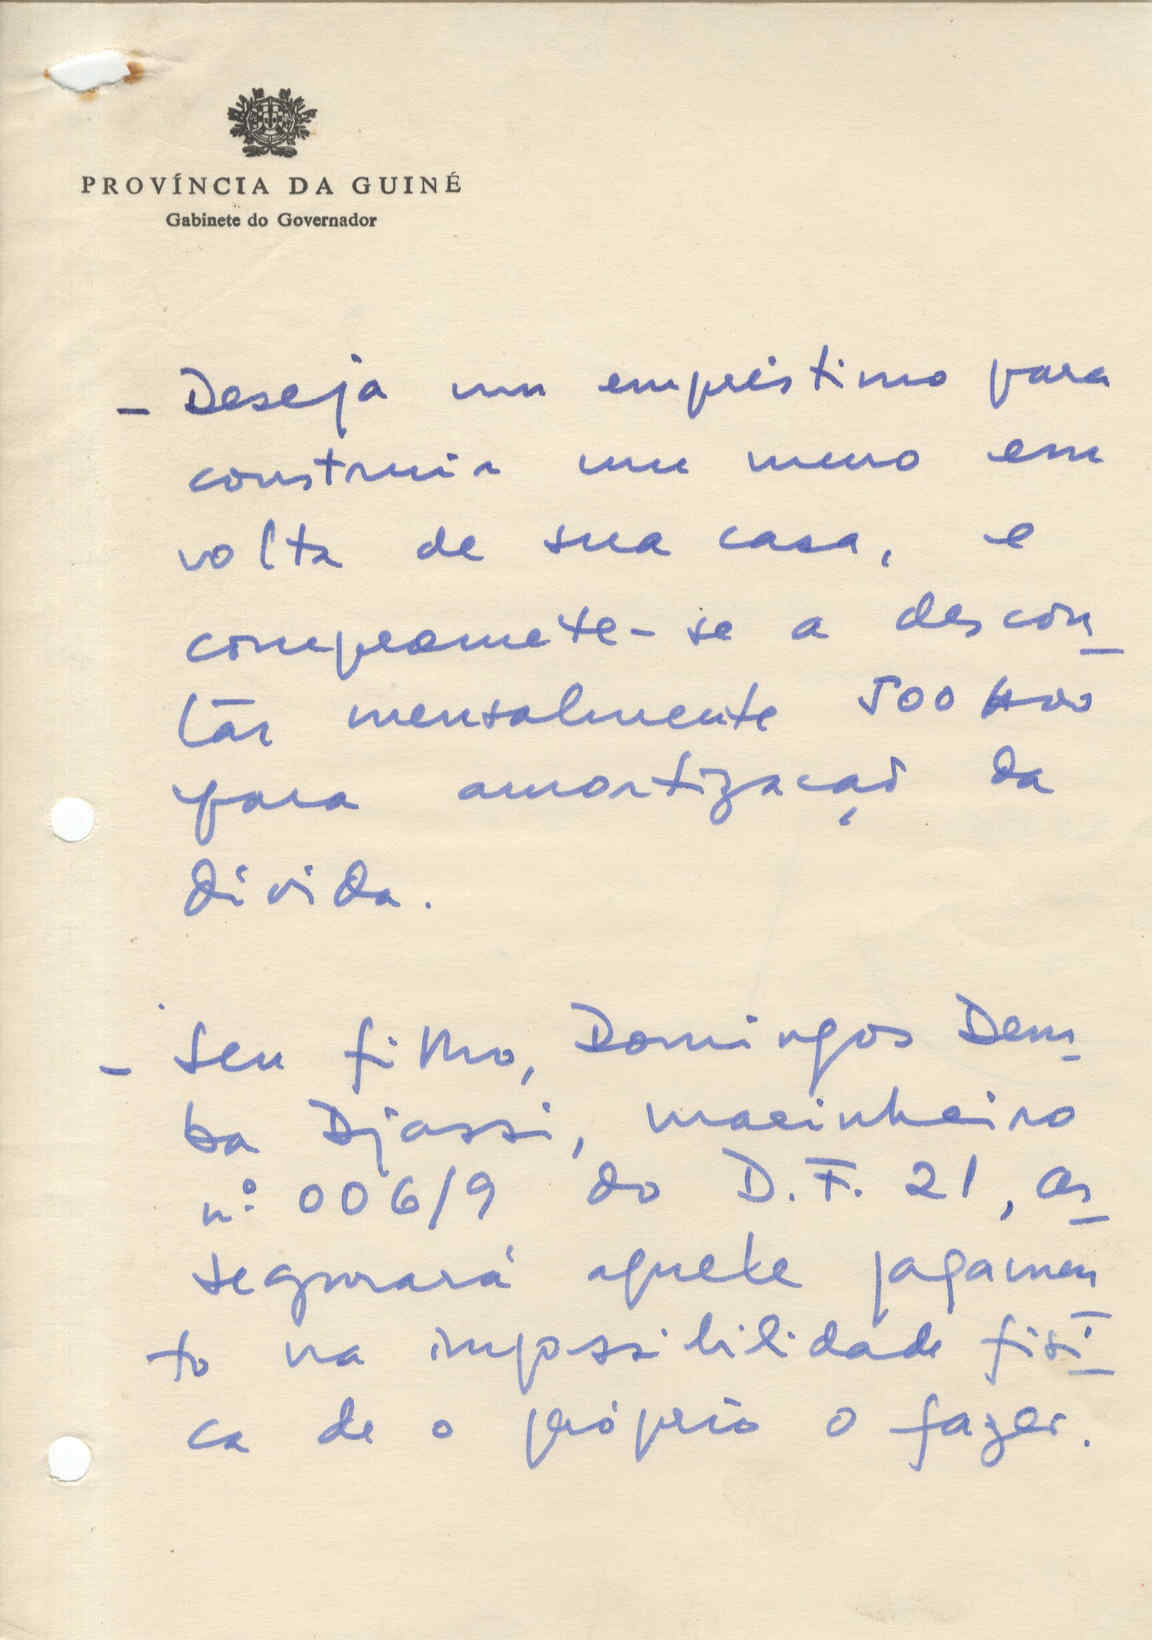 PROVÍNCIA DA GUINÉ
Gabinete do Governador
- Deseja um empréstimo para
construir um muro em
volta de sua casa, e
compromete-se a descon_
tar mensalmente 500$00
para amortização da
dívida.
- Seu filho, Domingos Dem_
ba Djassi, marinheiro
nº 006/9 do D.F. 21, as_
segurará aquele pagamen_
to na impossibilidade físi_
ca de o próprio o fazer.